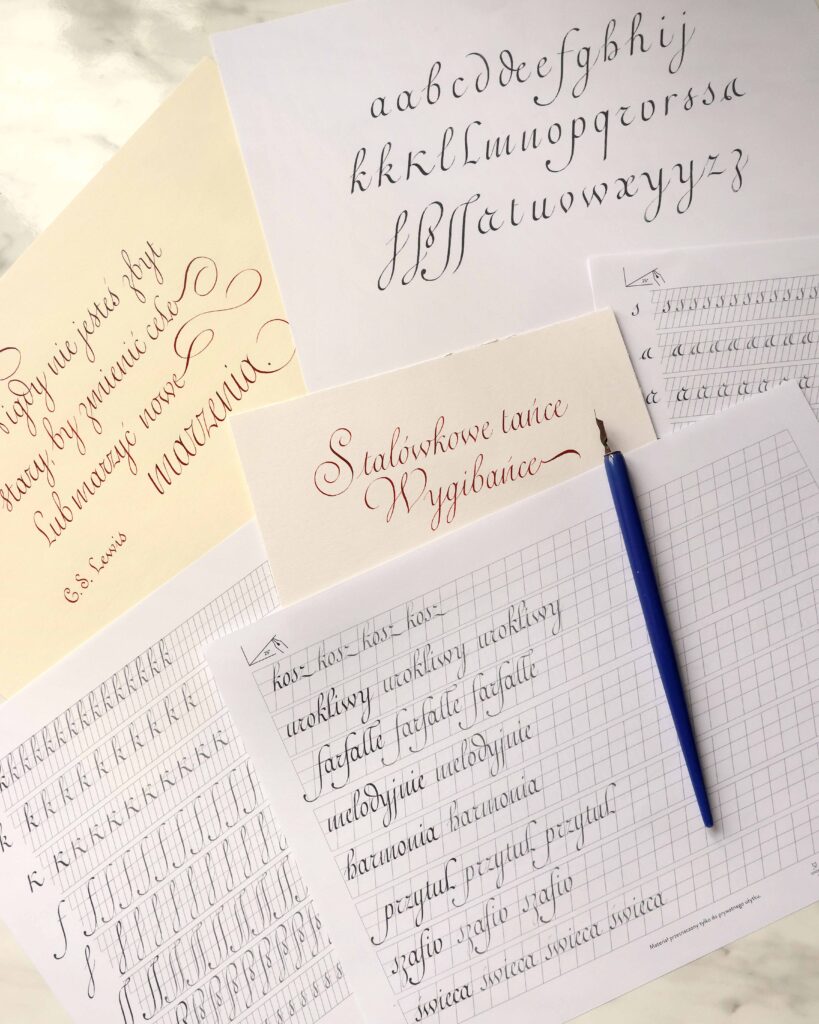 a a b c d d e e f g h h i j
k k k l l m n o p q r o r s s a
f ß ʃʃ a t u v w x y y z z
Nigdy nie jesteś zbyt
stary, by zmienić cele
Lub marzyć nowe
marzenia.
C.S. Lewis
Stalówkowe tańce
Wygibańce
s s s s s s s s s s s s s s
a a a a a a a a a a
a a a a a a a a a
kosz kosz kosz kosz
urokliwy urokliwy urokliwy
farfalle farfalle farfalle
melodyjnie melodyjnie
harmonia harmonia
przytul przytul przytul
szafio szafio szafio
świeca świeca świeca świeca
Materiał przeznaczony tylko do prywatnego użytku.